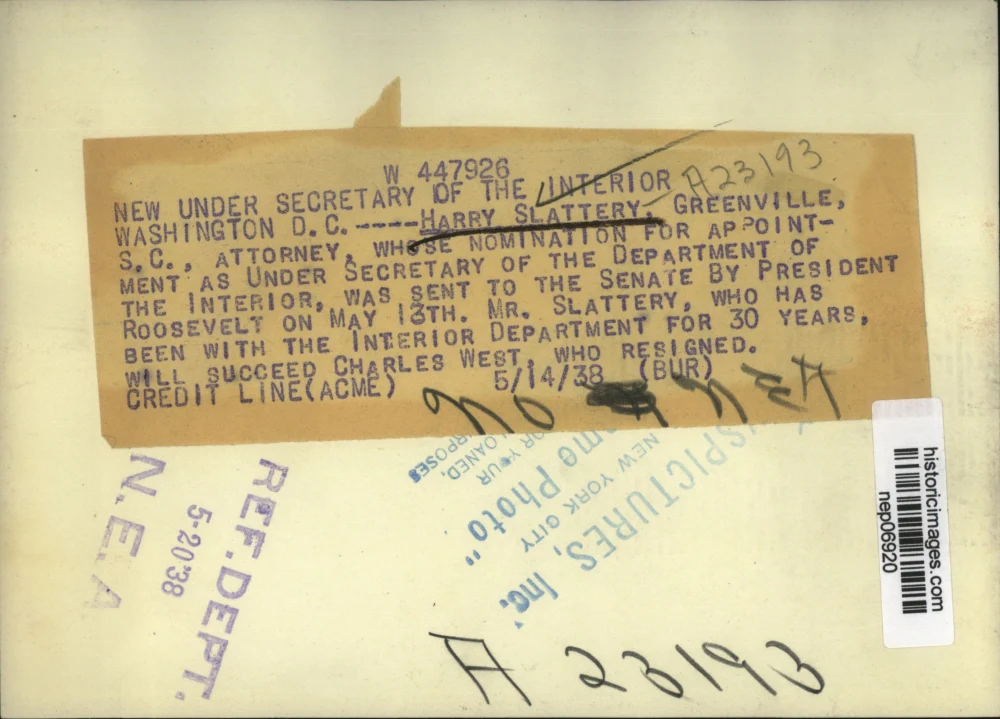 W 447926
NEW UNDER SECRETARY OF THE INTERIOR
A23193
WASHINGTON D.C.----HARRY SLATTERY, GREENVILLE,
S.C., ATTORNEY, WHOSE NOMINATION FOR APPOINT-
MENT AS UNDER SECRETARY OF THE DEPARTMENT OF
THE INTERIOR, WAS SENT TO THE SENATE BY PRESIDENT
ROOSEVELT ON MAY 13TH. MR. SLATTERY, WHO HAS
BEEN WITH THE INTERIOR DEPARTMENT FOR 30 YEARS,
WILL SUCCEED CHARLES WEST, WHO RESIGNED.
CREDIT LINE(ACME) 5/14/38 (BUR)
NO
NEA
OR YOUR
LOANED,
RPOSES
SPICTURES, Inc.
NEW YORK CITY
me Photo"
REF. DEPT.
5-20'38
N.E.A
historicimages.com
nep06920
A 23193